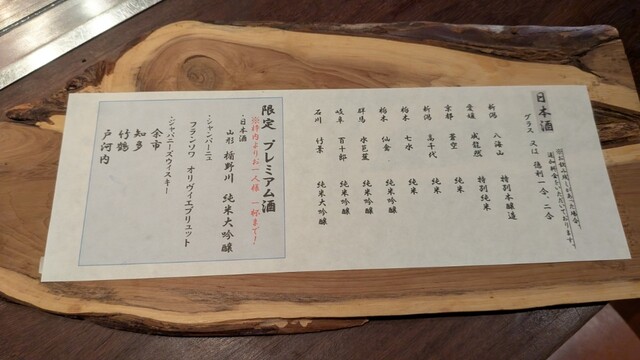 日本酒
グラス 又は 徳利一合、二合
新潟 八海山 特別本醸造
愛媛 成龍然 特別純米
京都 蒼空 純米
新潟 高千代 純米
栃木 七水 純米
栃木 仙禽 純米吟醸
群馬 水芭蕉 純米吟醸
岐阜 百十郎 純米吟醸
石川 竹葉 純米大吟醸
限定 プレミアム酒
※枠内よりお一人様 一杯まで!
・日本酒
山形 楯野川 純米大吟醸
・シャンパーニュ
フランソワ オリヴィエブリュット
・ジャパニーズウィスキー
余市
知多
竹鶴
戸河内